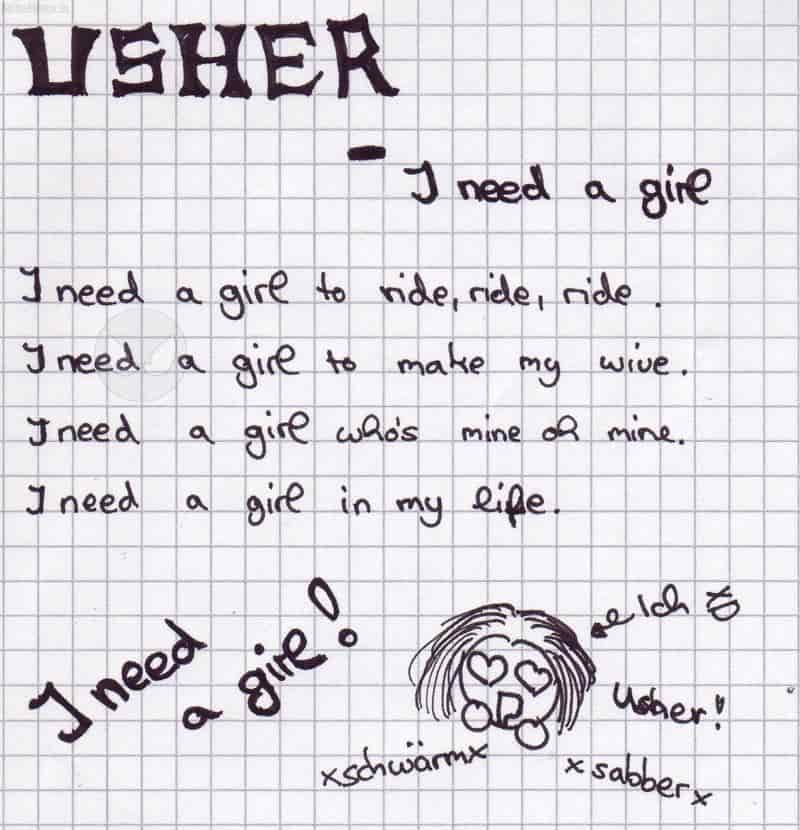 USHER
- I need a girl
I need a girl to ride, ride, ride.
I need a girl to make my wive.
I need a girl who's mine oh mine.
I need a girl in my life.
I need
a girl!
Ich
Usher!
xschwärmx
xsabberx